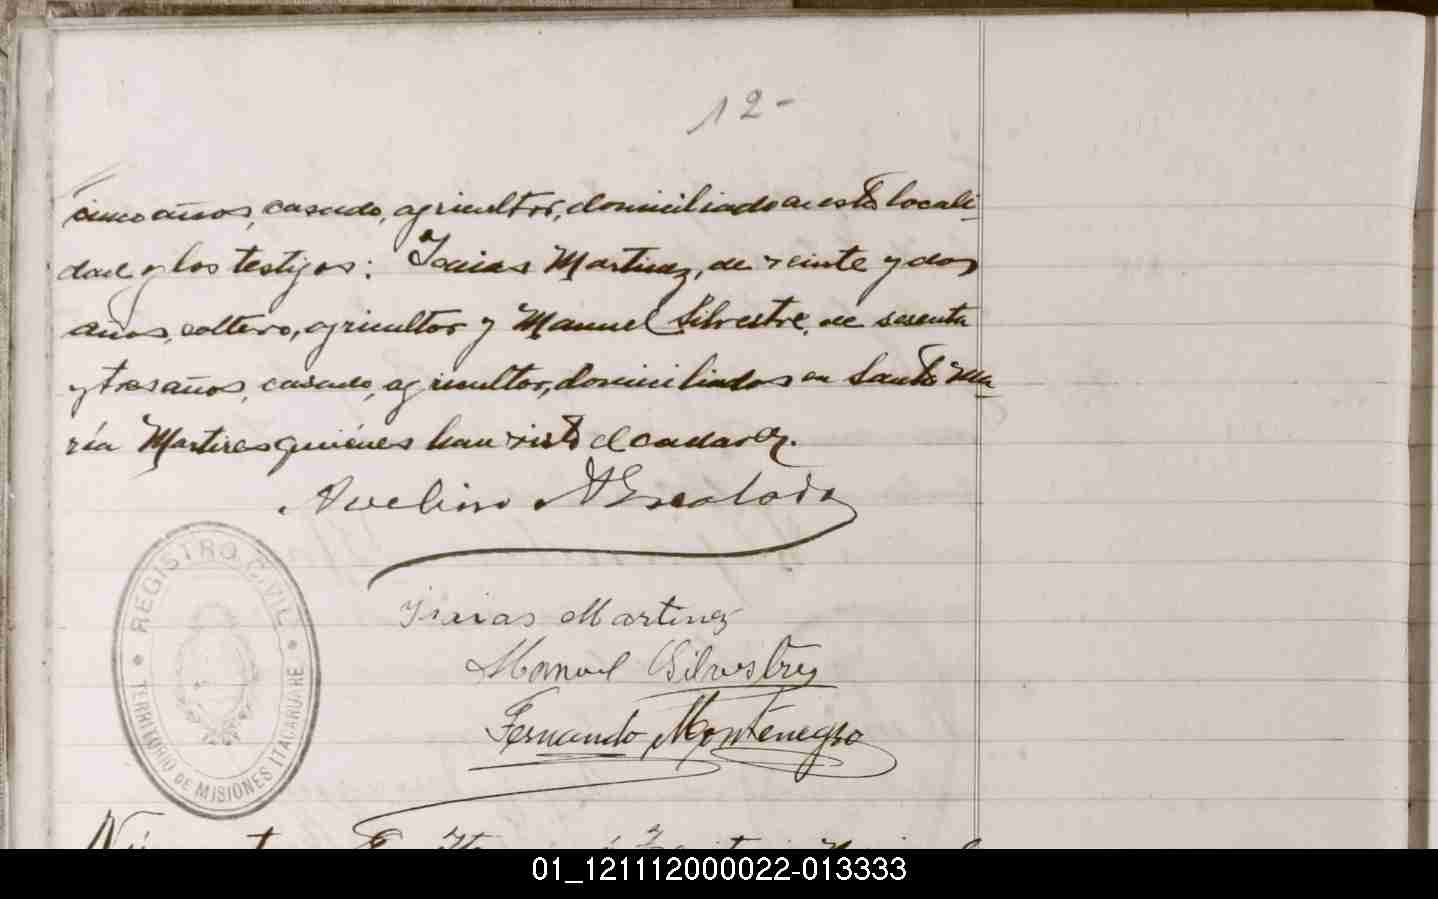 12-
cinco años, casado, agricultor, domiciliado en esta locali-
dad y los testigos: Isaias Martinez, de veinte y dos
años, soltero, agricultor y Manuel Silvestre, de sesenta
y tres años, casado, agricultor, domiciliados en Santa Ma-
ría Martires quiénes han visto el cadaver.
Avelino A Escalada
Isaias Martinez
Manuel Silvestre
Fernando Montenegro
REGISTRO CIVIL
TERRITORIO DE MISIONES ITACARUARE
01_121112000022-013333